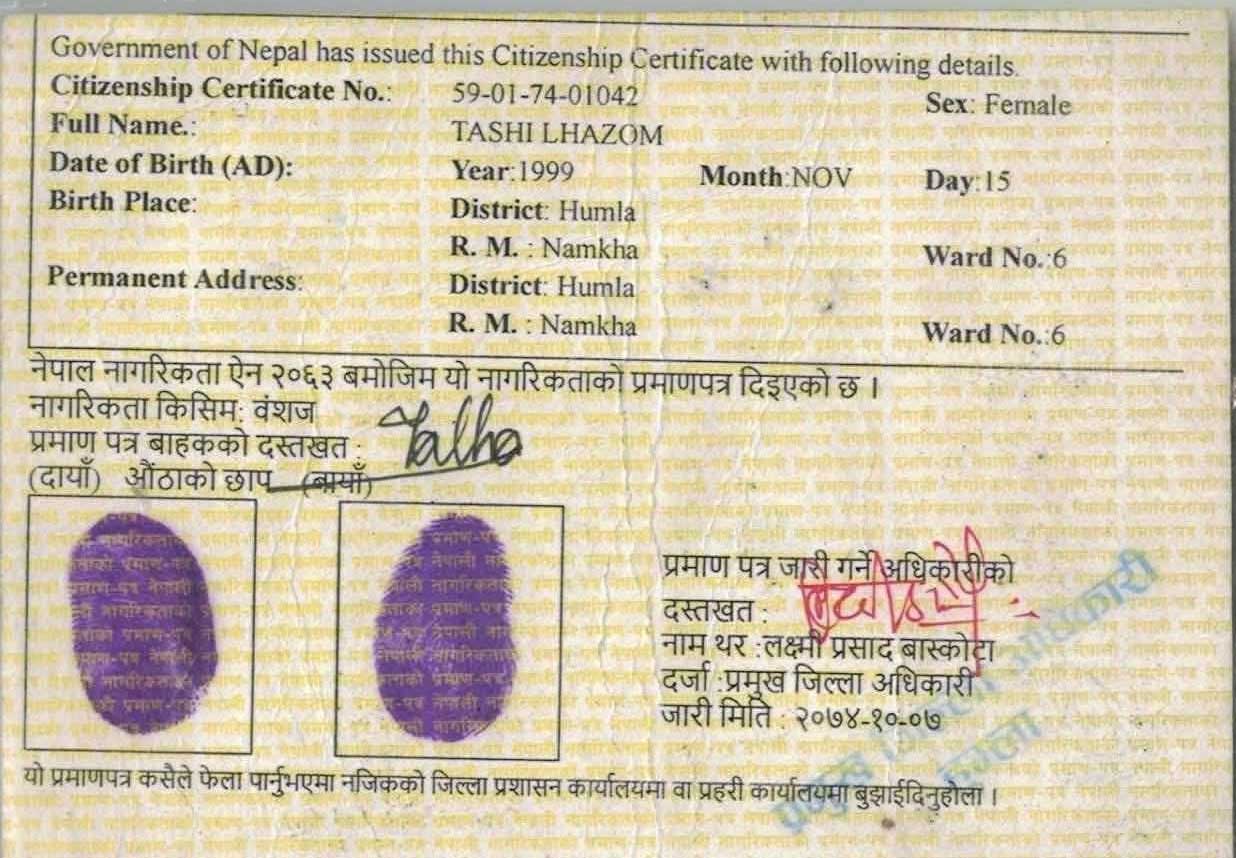 Government of Nepal has issued this Citizenship Certificate with following details.
Citizenship Certificate No.: 59-01-74-01042 Sex: Female
Full Name.: TASHI LHAZOM
Date of Birth (AD): Year:1999 Month:NOV Day:15
Birth Place: District: Humla
R. M. : Namkha Ward No.:6
Permanent Address: District: Humla
R. M. : Namkha Ward No.:6
नेपाल नागरिकता ऐन २०६३ बमोजिम यो नागरिकताको प्रमाणपत्र दिइएको छ ।
नागरिकता किसिम: वंशज
प्रमाण पत्र बाहकको दस्तखत :
(दायाँ) औंठाको छाप (बायाँ)
प्रमाण पत्र जारी गर्ने अधिकारीको
दस्तखत :
नाम थर :लक्ष्मी प्रसाद बास्कोटा
दर्जा :प्रमुख जिल्ला अधिकारी
जारी मिति : २०७४-१०-०७
प्रमुख जिल्ला अधिकारी
हुम्ला
यो प्रमाणपत्र कसैले फेला पार्नुभएमा नजिकको जिल्ला प्रशासन कार्यालयमा वा प्रहरी कार्यालयमा बुझाईदिनुहोला ।